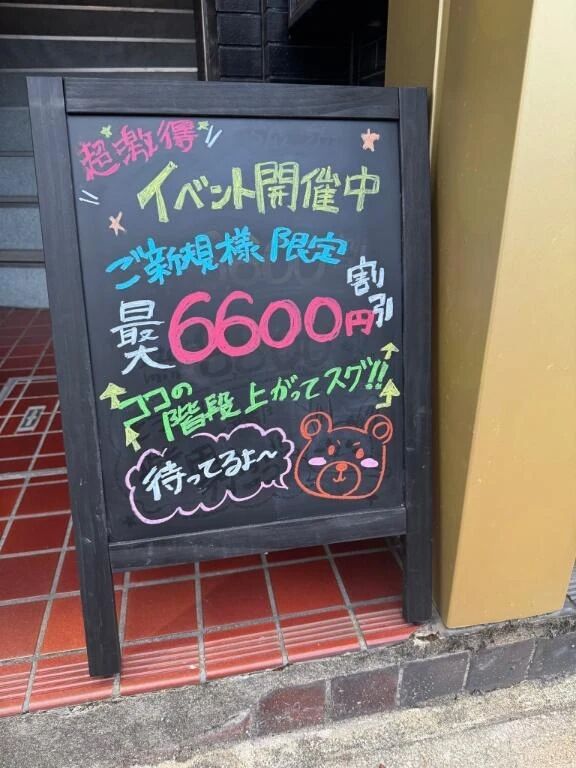 超激得
イベント開催中
ご新規様限定
最大6600円割引
ココの階段上がってスグ!!
待ってるよ〜